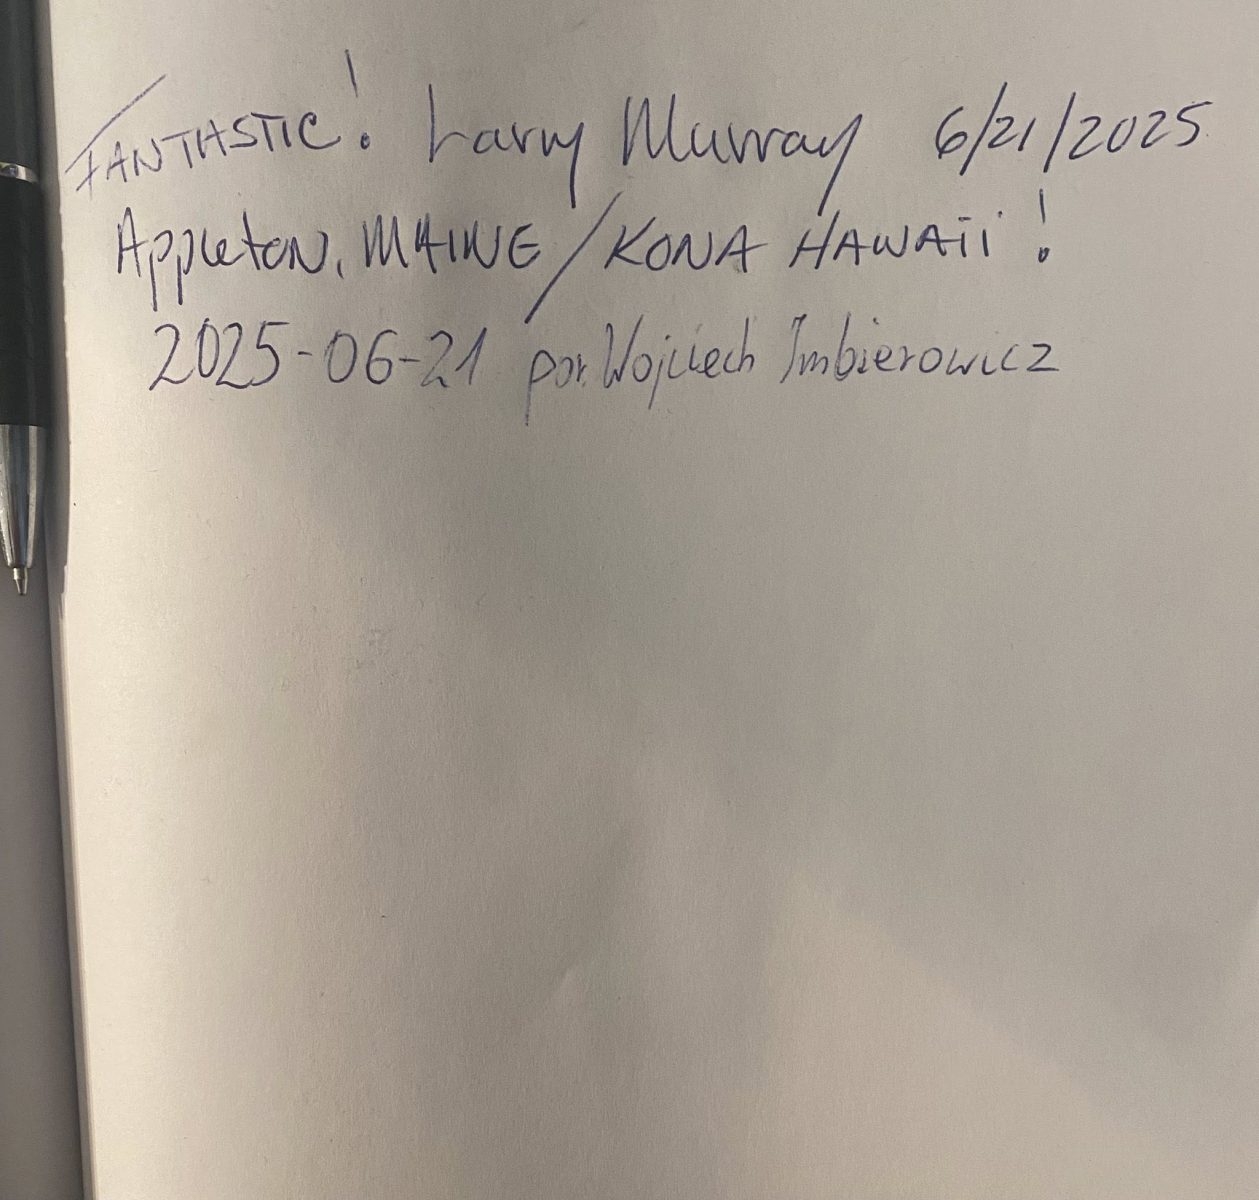 FANTASTIC! Larry Murray 6/21/2025
Appleton, MAINE / KONA HAWAII!
2025-06-21 por. Wojciech Imbierowicz